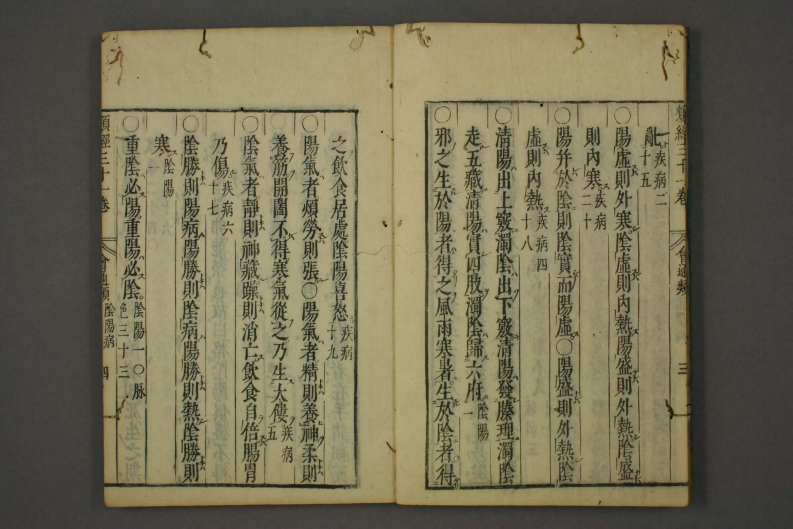 類經三十一卷 會通類 三
亂 疾病二十五
○陽虛則外寒陰虛則內熱陽盛則外熱陰盛
則內寒 疾病二十
○陽并於陰則陰實而陽虛○陽盛則外熱陰
虛則內熱 疾病四十八
○清陽出上竅濁陰出下竅清陽發腠理濁陰
走五藏清陽實四肢濁陰歸六府 陰陽一
○邪之生於陽者得之風雨寒暑生於陰者得
之飲食居處陰陽喜怒 疾病十九
○陽氣者煩勞則張○陽氣者精則養神柔則
養筋開闔不得寒氣從之乃生大僂 疾病五
○陰氣者靜則神藏躁則消亡飲食自倍腸胃
乃傷 疾病六十七
○陰勝則陽病陽勝則陰病陽勝則熱陰勝則
寒 陰陽一
○重陰必陽重陽必陰 陰陽一○脉色三十三
類經三十一卷 會通類 陰陽病 四